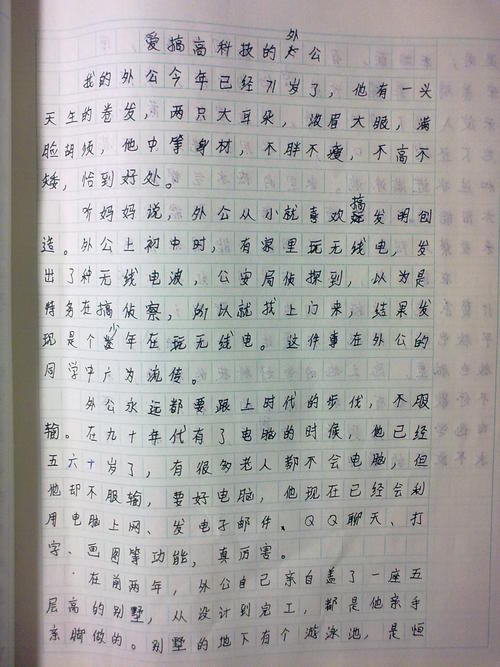 爱搞高科技的外公
我的外公今年已经71岁了，他有一头
天生的卷发，两只大耳朵，浓眉大眼，满
脸胡须，他中等身材，不胖不瘦，不高不
矮，恰到好处。
听妈妈说，外公从小就喜欢搞发明创
造。外公上初中时，在家里玩无线电，发
出了种无线电波，公安局侦探到，以为是
特务在搞侦察，所以就找上门来，结果发
现是个少年在玩无线电。这件事在外公的
同学中广为流传。
外公永远都要跟上时代的步伐，不服
输。在九十年代有了电脑的时候，他已经
五六十岁了，有很多老人都不会电脑，但
他却不服输，要好电脑，他现在已经会利
用电脑上网、发电子邮件、QQ聊天、打
字、画图等功能，真厉害。
在前两年，外公自己亲自盖了一座五
层高的别墅，从设计到完工，都是他亲手
亲脚做的。别墅的地下有个游泳池，是恒